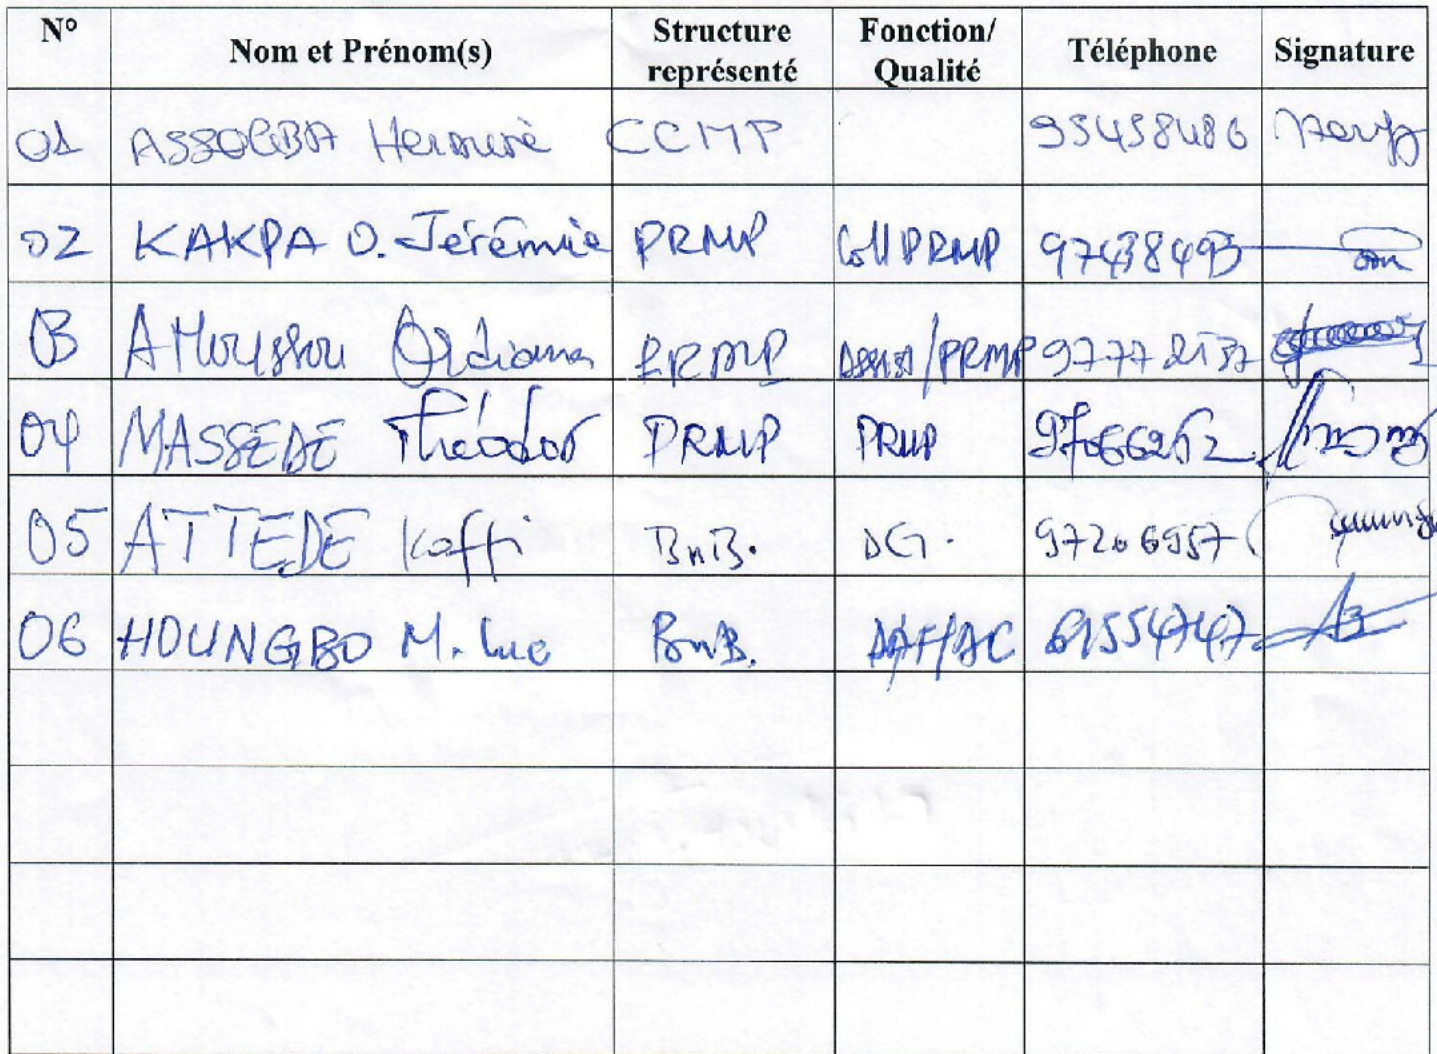 N° Nom et Prénom(s) Structure représenté Fonction/ Qualité Téléphone Signature
01 ASSOGBA CCMP 95458486
02 KAKPA O. Jérémie PRMP Coll PRMP 97438493
03 AHoussou PRMP Assist/PRMP
04 MASSEDE Théodor PRMP PRMP 97066252
05 ATTEDE Koffi BnB. DG. 97206957
06 HOUNGBO M. Luc BnB. DAF/AC 61554747